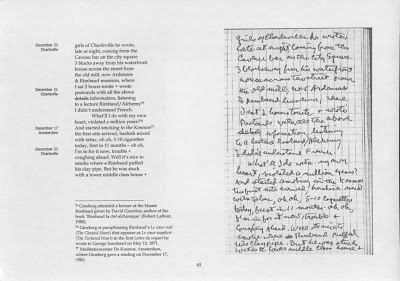 girls of Charleville he wrote,
December 22
Charleville
late at night, coming from the
Cavous bar on the city square
3 blocks away from his waterfront
house across the street from
the old mill, now Ardennes
& Rimbaud museum, where
I sat 2 hours tonite + wrote
December 21
Charleville
postcards with all the above
details information, listening
to a lecture Rimbaud/Alchemy
I didn't understand French.
What'll I do with my own
heart, violated a million years
December 17
Amsterdam
And started smoking in the Kosmos
the first nite arrived, hashish mixed
with tabac, oh oh, 5-10 cigarettes
today, first in 11 months - oh oh,
December 22
Charleville
I'm in for it now, trouble +
coughing ahead. Well it's nice to
smoke where Rimbaud puffed
his clay pipe. But he was stuck
with a lower middle class home +
Ginsberg attended a lecture at the Musée
Rimbaud given by David Guerdon, author of the
book 'Rimbaud: la clef alchimique' (Robert Laffont,
1980).
Ginsberg is paraphrasing Rimbaud's Le cœur volé
(The Cheated Heart) that appears as Le cœur supplicié
(The Tortured Heart) in the first Lettre du voyant he
wrote to George Izambard on May 13, 1871.
Meditationcenter De Kosmos, Amsterdam,
where Ginsberg gave a reading on December 17,
girls of Charleville he wrote,
late at night coming from the
Cavous bar on the city square
3 blocks away from his waterfront
house across the street from
the old mill, now Ardennes
& Rimbaud museum, where
I sat 2 hours tonite + wrote
Postcards with all the above
details information, listening
to a lecture Rimbaud/Alchemy
I didn't understand French.
What'll I do with my own
heart, violated a million years
And started smoking in the Kosmos
the first nite arrived, hashish mixed
with tabac, oh oh, 5-10 cigarettes
today, first in 11 months - oh oh,
I'm in for it now, trouble +
Coughing ahead. Well it's nice to
smoke where Rimbaud puffed
his clay pipe. But he was stuck
with a lower middle class home +